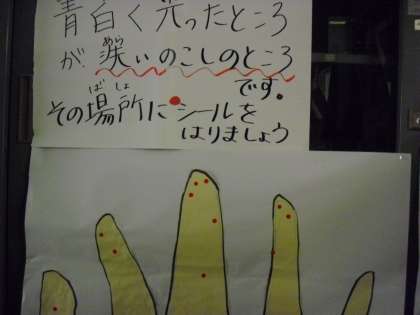 青白く光ったところ
が、洗いのこしのところ
です。
その場所に●シールを
はりましょう